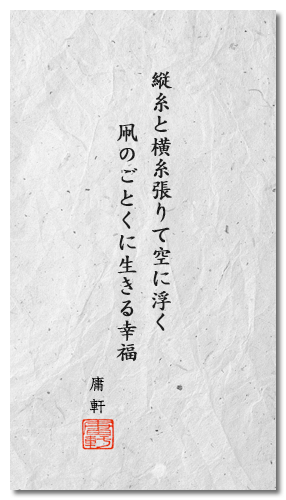 縦糸と横糸張りて空に浮く
凧のごとくに生きる幸福
庸軒